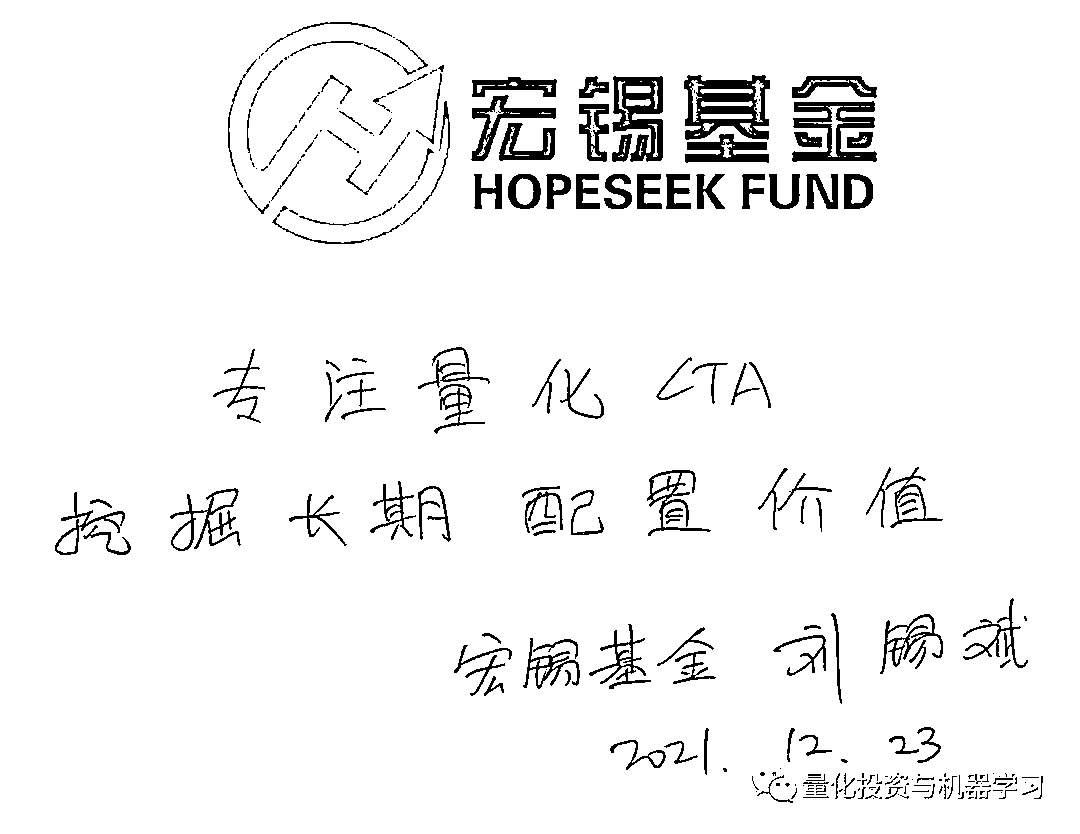 宏锡基金
HOPESEEK FUND
专注量化CTA
挖掘长期配置价值
宏锡基金 刘锡斌
2021.12.23
量化投资与机器学习